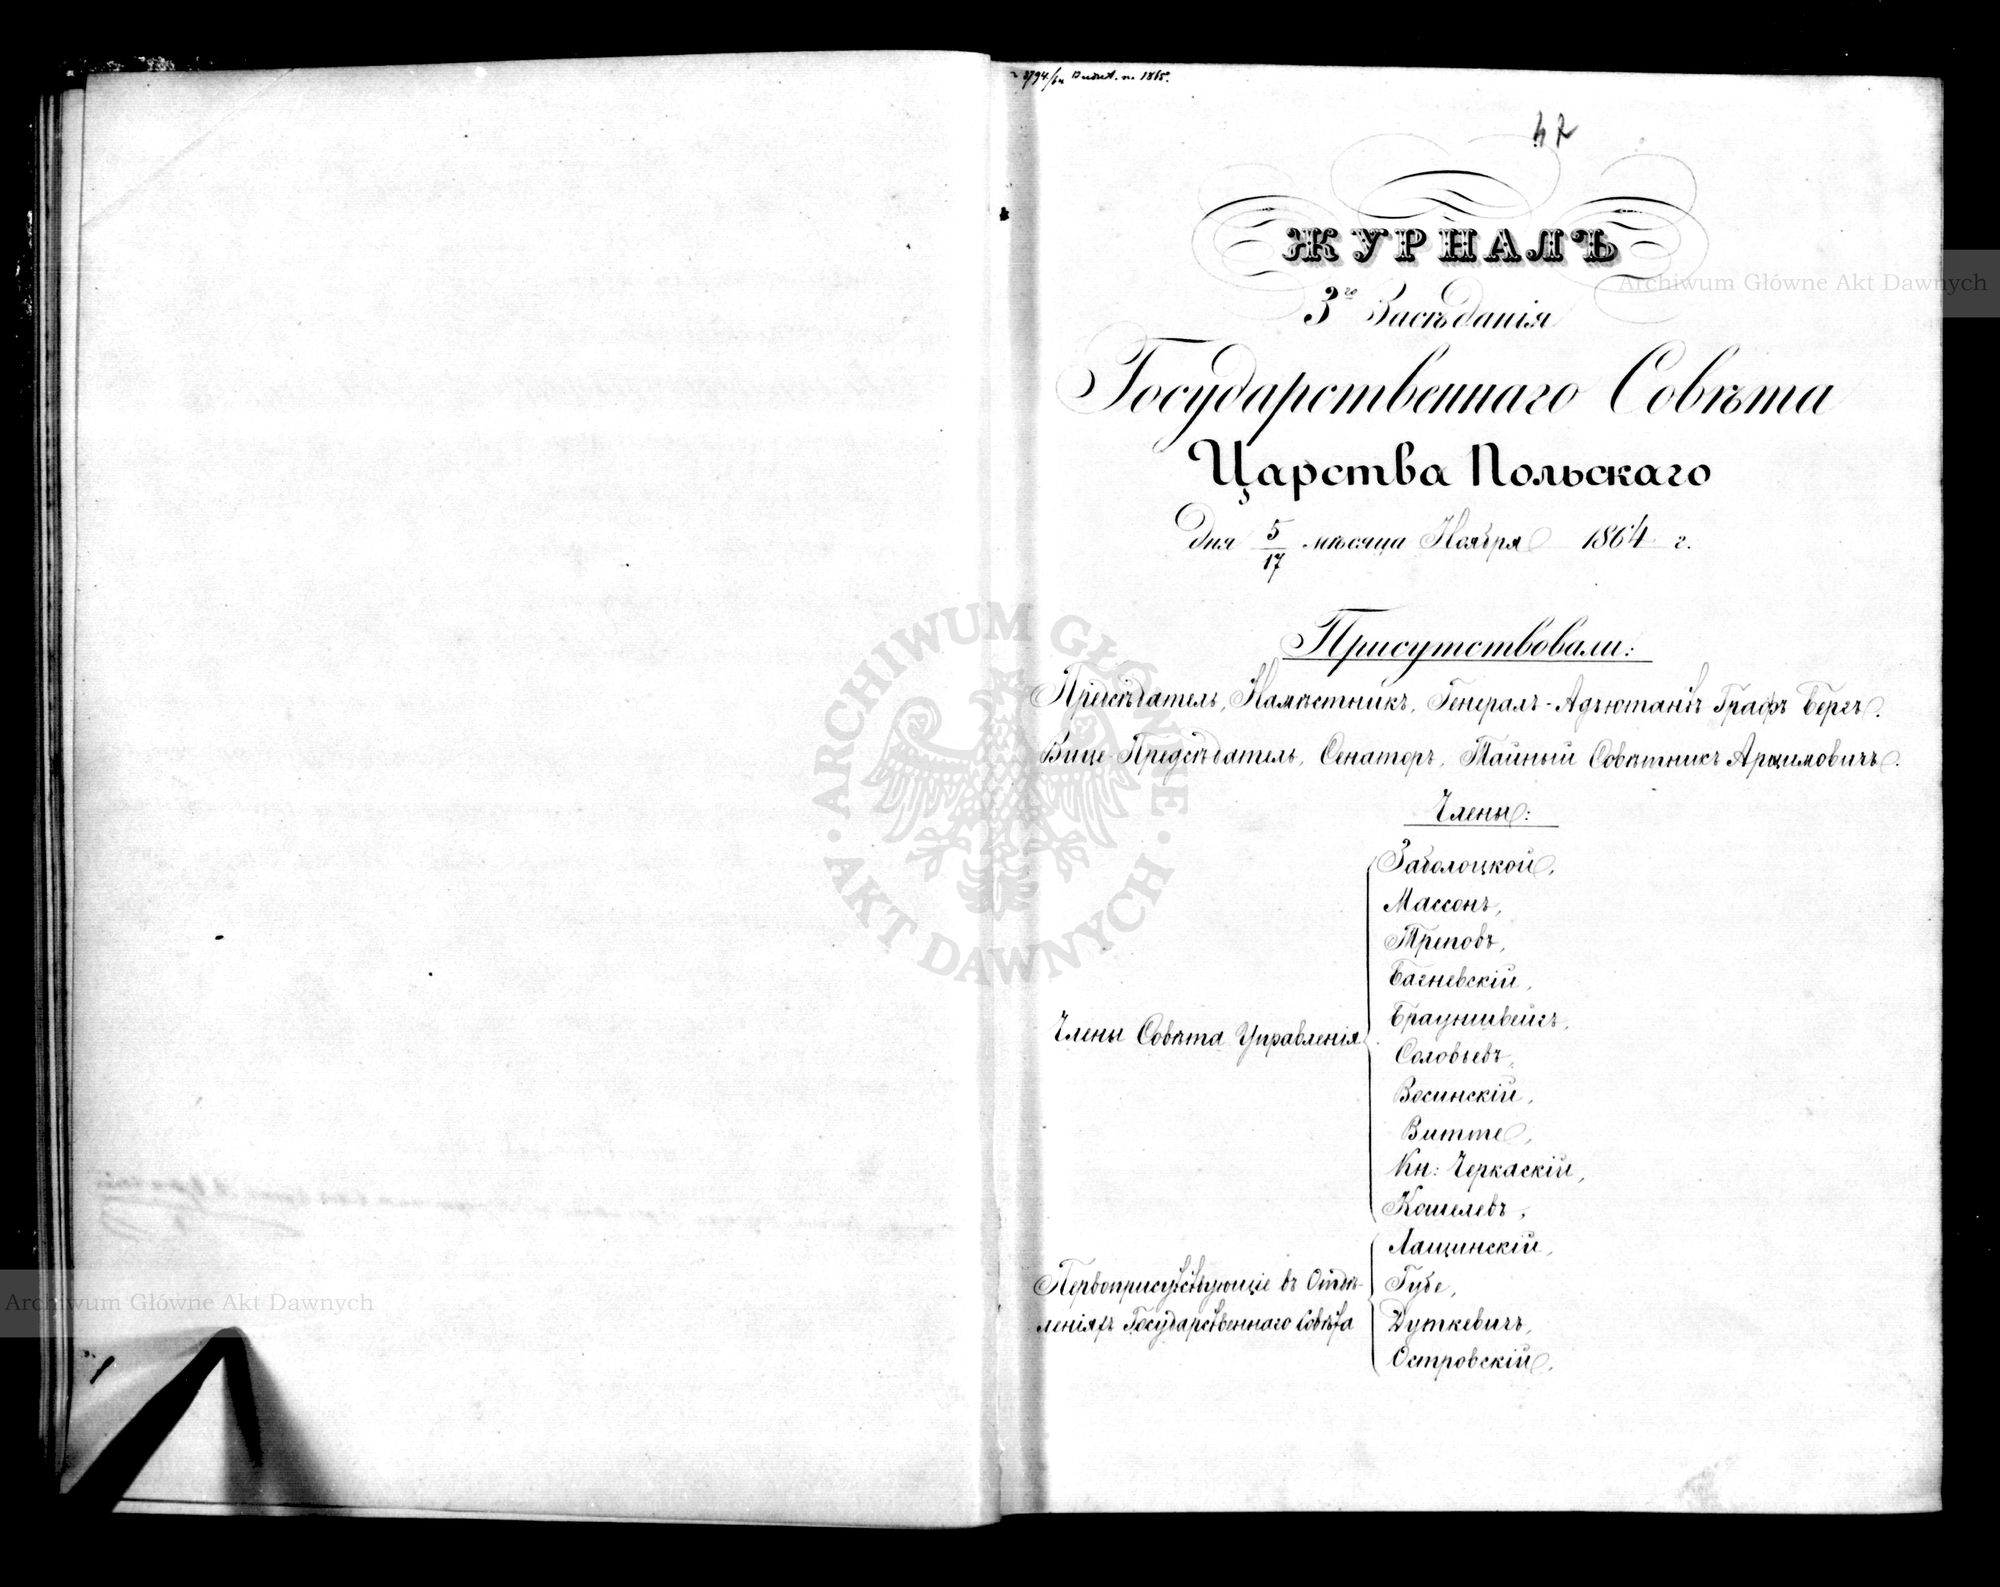 42
ЖУРНАЛЪ
3го Засѣданія
Государственнаго Совѣта
Царства Польскаго
дня 5/17 мѣсяца Ноября 1864 г.
Присутствовали:
Предсѣдатель, Намѣстникъ, Генералъ-Адъютантъ Графъ Бергъ.
Вице-Предсѣдатель, Сенаторъ, Тайный Совѣтникъ Арцимовичъ.
Члены:
Члены Совѣта Управленія
Заболоцкой,
Массонъ,
Треповъ,
Багневскій,
Брауншвейгъ,
Соловьевъ,
Восинскій,
Витте,
Кн: Черкаскій,
Кошелевъ,
Первоприсутствующіе въ Отдѣ-
леніяхъ Государственнаго Совѣта
Лащинскій,
Губе,
Дуткевичъ,
Островскій.
Archiwum Główne Akt Dawnych
ARCHIWUM GŁÓWNE · AKT DAWNYCH ·
Archiwum Główne Akt Dawnych